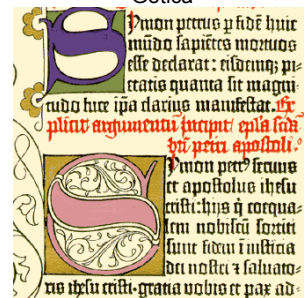 Gótica
Symon petrus p fidē huic
mūdo sapiētes mortuos
esse declarat : eisdemq; pi-
etatis quanta sit magni-
tudo luce ipa clarius manifestat. Ex
plicit argumentū Incipit epl'a scd'a
bti petri apostoli.
Symon petr⁹ servus
et apostolus ihesu
cristi: hijs q̄ coequa-
lem nobiscū sortiti
sunt fidem ī iusticia
dei nostri ⁊ salvato-
ris ihesu cristi. gratia vobis et pax ad-